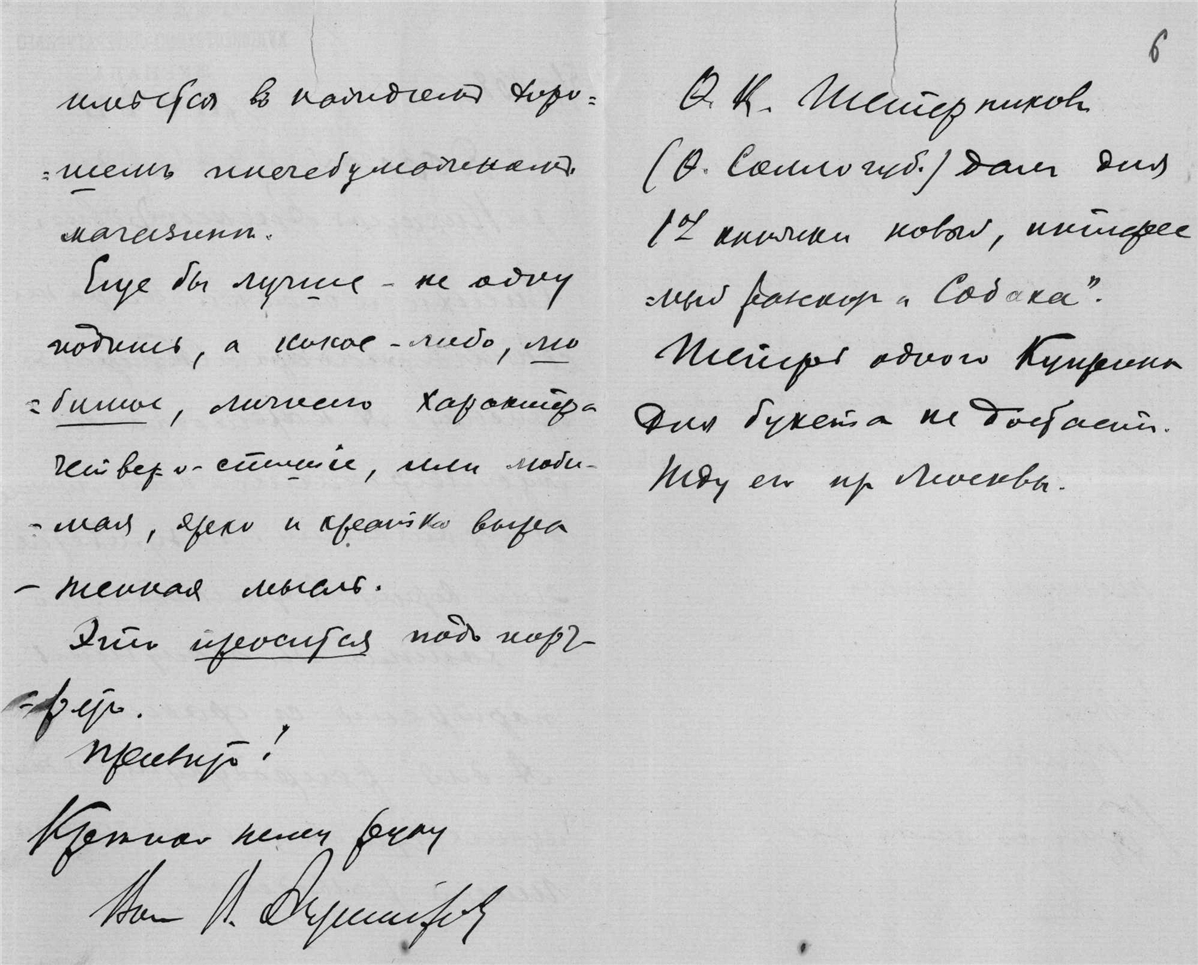 имѣется въ каждомъ хоро=
=шемъ писчебумажномъ
магазинѣ.
Еще бы лучше – не одну
подпись, а какое-либо, лю
=бимое, личнаго характера
четверо-стишіе, или люби-
-мая, ярко и кратко выра
-женная мысль.
Это просится подъ порт-
=ретъ.
Привѣтъ!
Крѣпко жму руку
Вашъ
6
Ѳ. К. Тетерниковъ
(Ѳ. Соллогубъ.) далъ для
17 книжки новый, интерес
=ный разсказъ „Собака".
Теперь одного Куприна
для букета не достаетъ.
Жду его изъ Москвы.